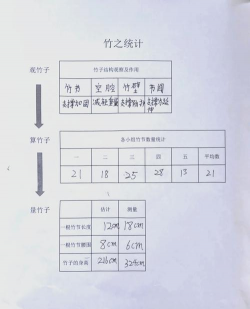 竹之统计
观竹子
竹子结构观察及作用
竹节 空腔 竹壁 竹隔
支撑加固 减轻重量 支撑
算竹子
各小组竹节数量统计
一 二 三 四 五 平均数
21 18 25 28 13 21
量竹子
估计 测量
一根竹节长度 12cm 18cm
一根竹节腰围 8cm 6cm
竹子的身高